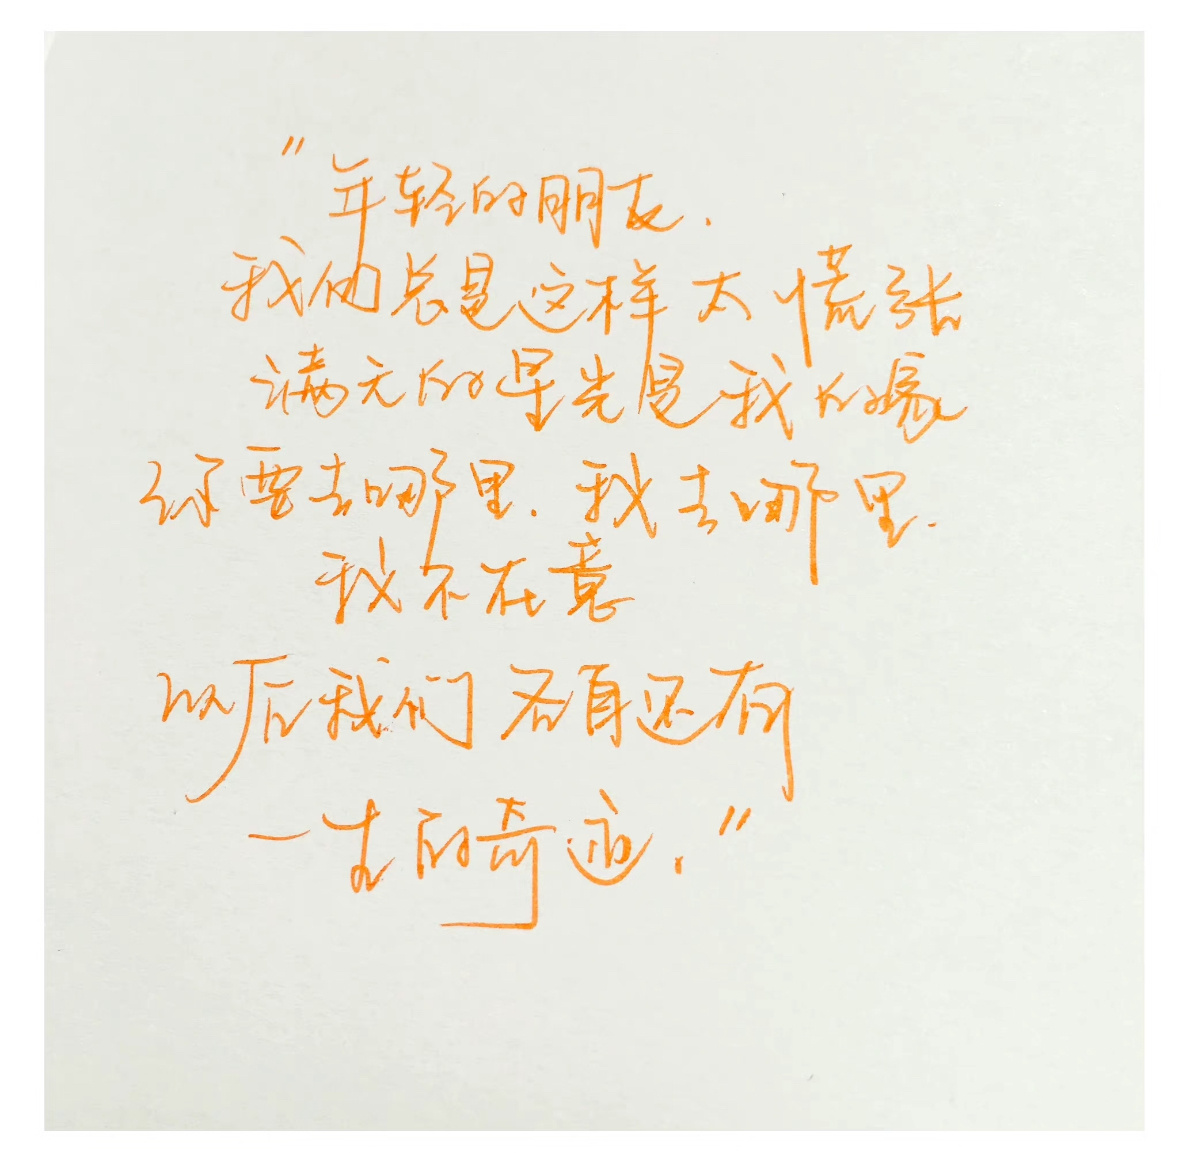 "年轻的朋友.
我们总是这样太慌张
满天的星光是我的嫁
你要去哪里.我去哪里.
我不在意
以后我们各自还有
一生的奇迹."